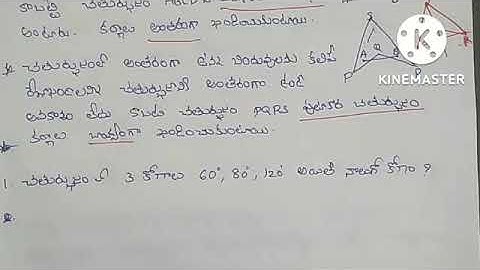 కాబట్టి చతుర్భుజం
అంటారు. కర్ణాలు అంతరంగా ఖండించుకుంటాయి.
చతుర్భుజంలో అంతరంగా ఉన్న బిందువులను కలిపే
రేఖాఖండం చతుర్భుజానికి అంతరంగా ఉండే
అవకాశం లేదు కాబట్టి చతుర్భుజం PQRS పుటాకార చతుర్భుజం
కర్ణాలు బాహ్యంగా ఖండించుకుంటాయి.
1. చతుర్భుజం లో 3 కోణాలు 60°, 80°, 120° అయితే నాలుగో కోణం ?
2.
S
R
Q
P
K
KINEMASTER